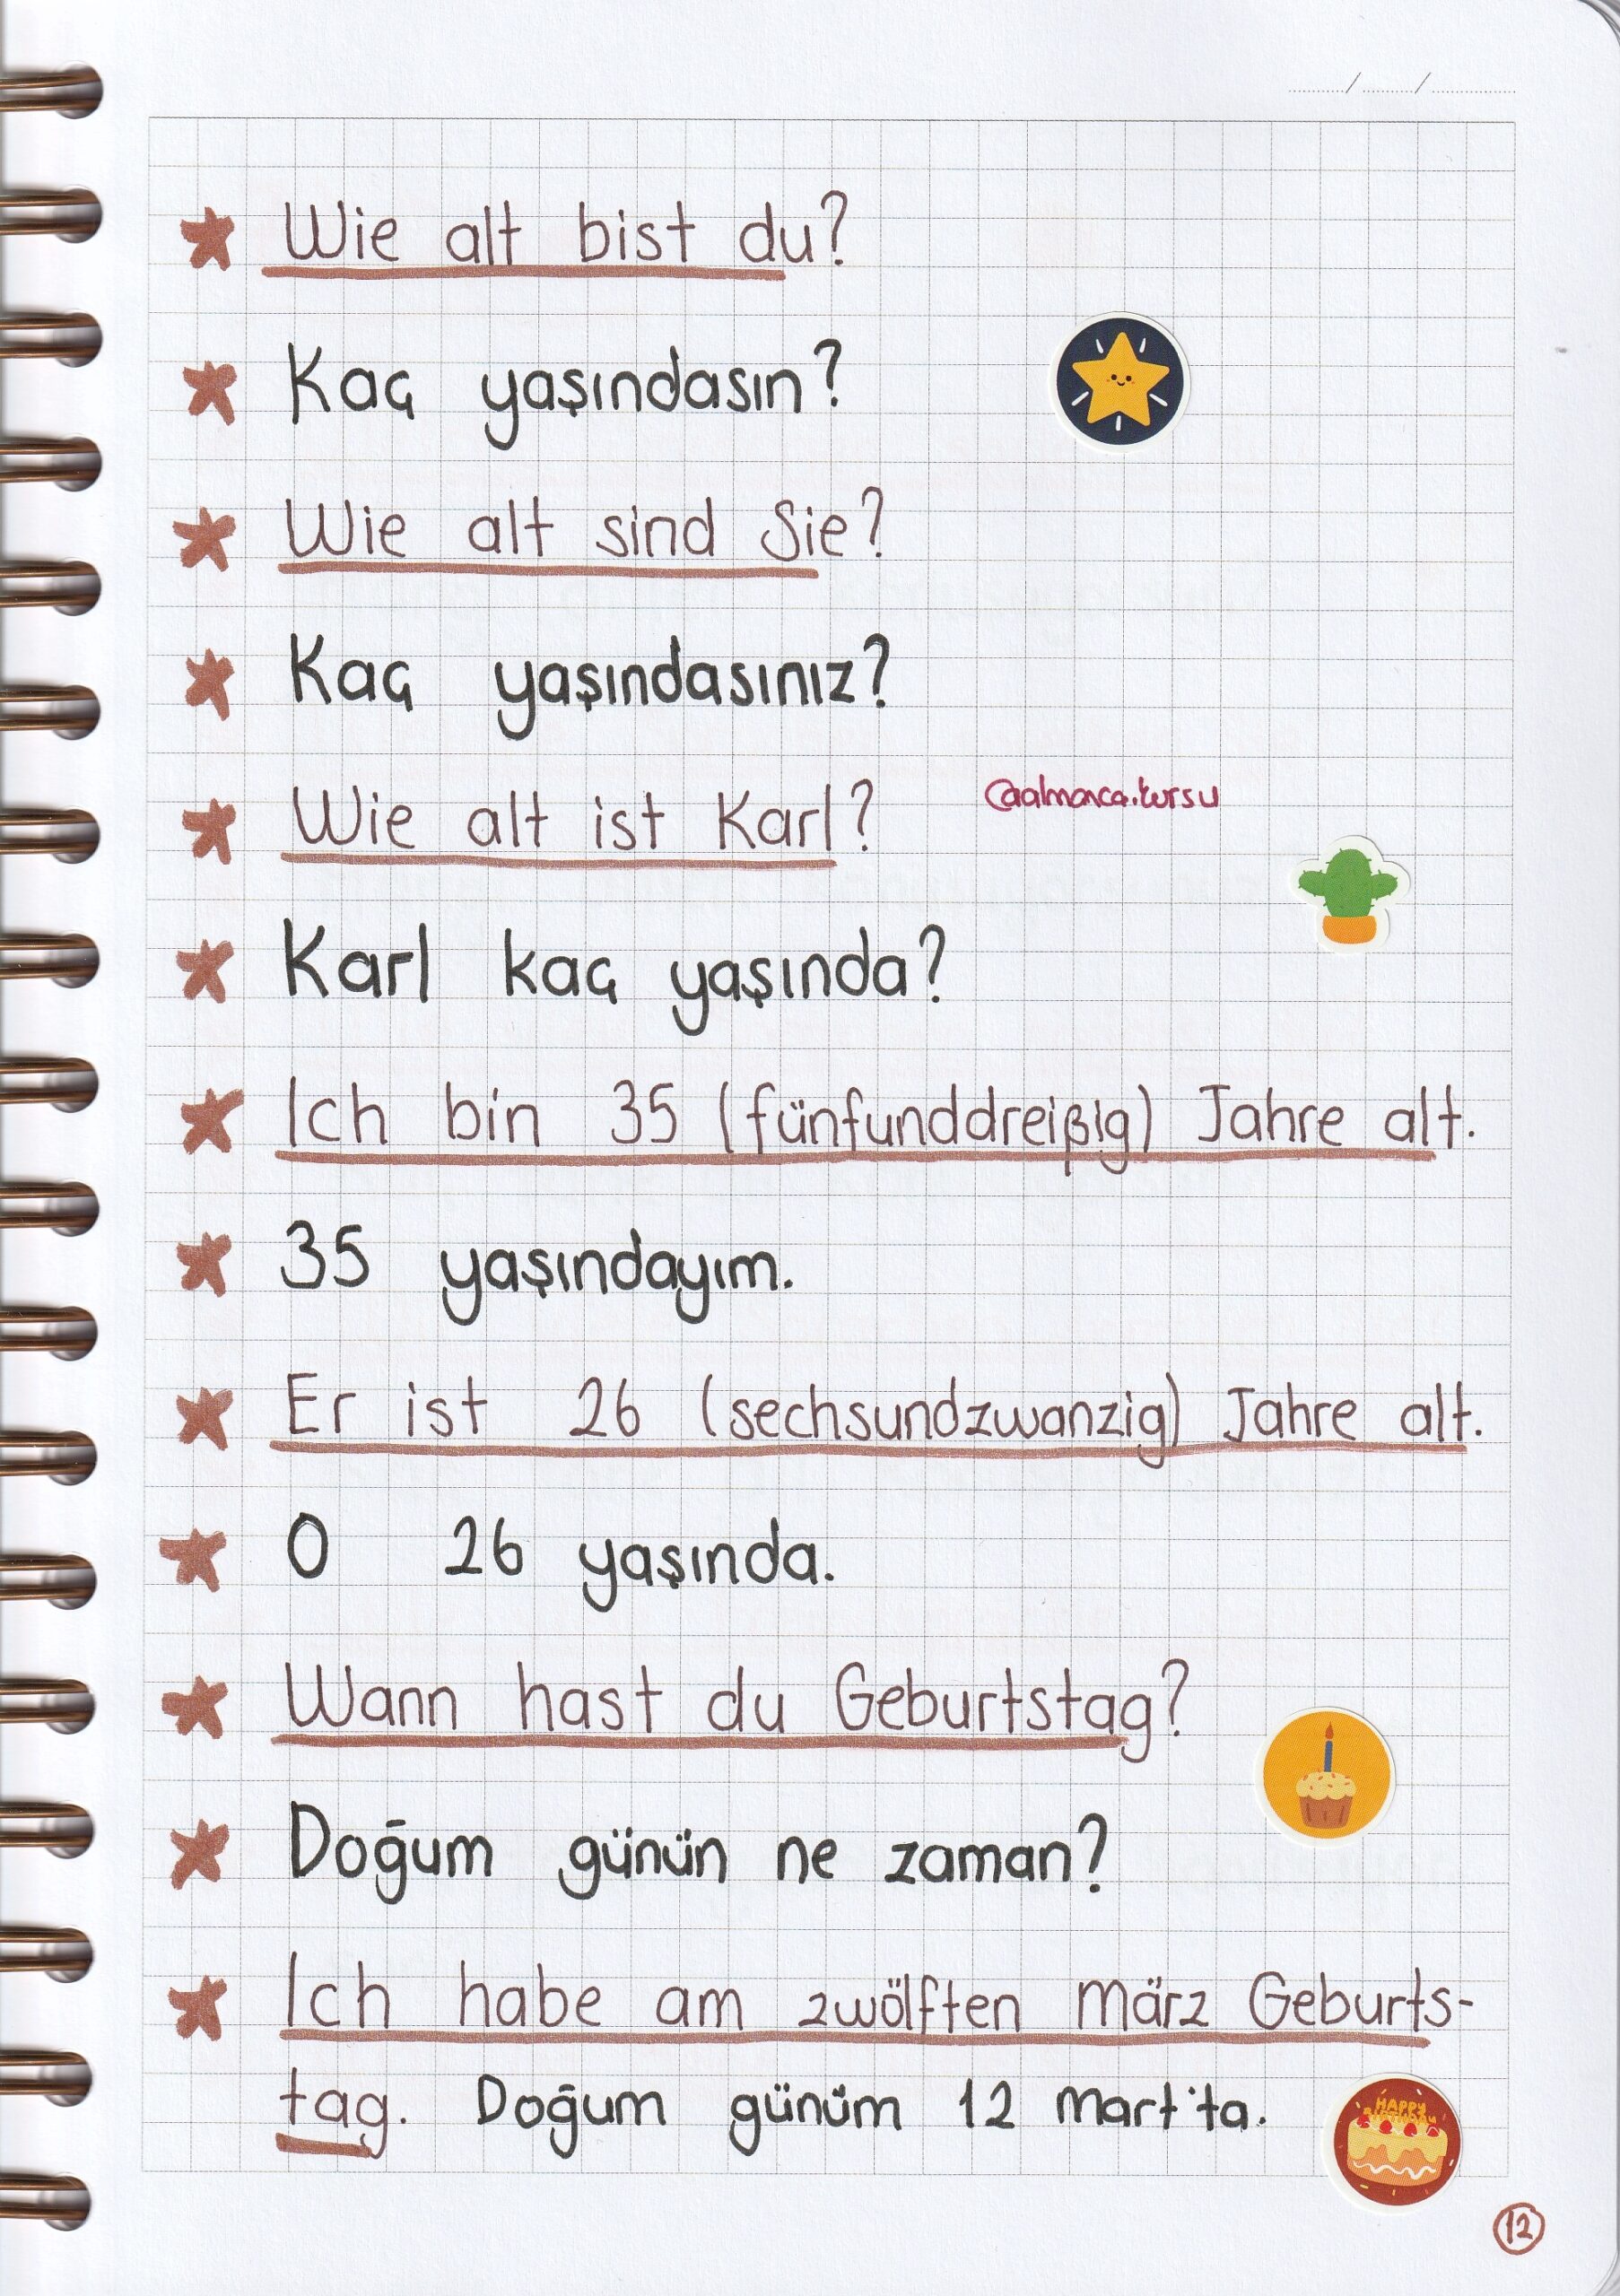 Wie alt bist du?
Kaç yaşındasın?
Wie alt sind Sie?
Kaç yaşındasınız?
@almanca.kursu
Wie alt ist Karl?
Karl kaç yaşında?
Ich bin 35 (fünfunddreißig) Jahre alt.
35 yaşındayım.
Er ist 26 (sechsundzwanzig) Jahre alt.
O 26 yaşında.
Wann hast du Geburtstag?
Doğum günün ne zaman?
Ich habe am zwölften März Geburts-
tag. Doğum günüm 12 Mart'ta.
HAPPY
BIRTHDAY
12